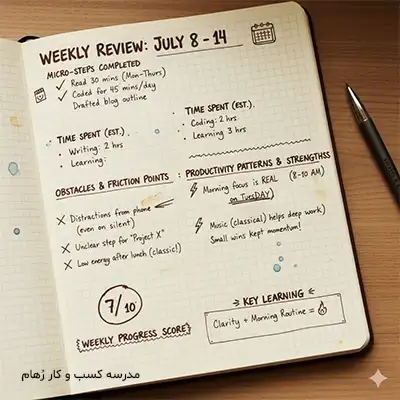 WEEKLY REVIEW: JULY 8 - 14
MICRO-STEPS COMPLETED
✓ Read 30 mins (Mon-Thurs)
✓ Coded for 45 mins/day
Drafted blog outline
TIME SPENT (EST.)
• Writing: 2 hrs
• Learning:
TIME SPENT (EST.)
• Coding: 2 hrs
• Learning 3 hrs
OBSTACLES & FRICTION POINTS :
X Distractions from phone
(even on silent)
X Unclear step for "Project X"
X Low energy after lunch (classic!)
PRODUCTIVITY PATTERNS & STRENGTHSS
Morning focus is REAL (8-10 AM)
on TUESDAY)
Music (classical) helps deep work)
Small wins kept momentum!
7/10
{WEEKLY PROGRESS SCORE}
KEY LEARNING
Clarity + Morning Routine =
مدرسه کسب و کار رُهام